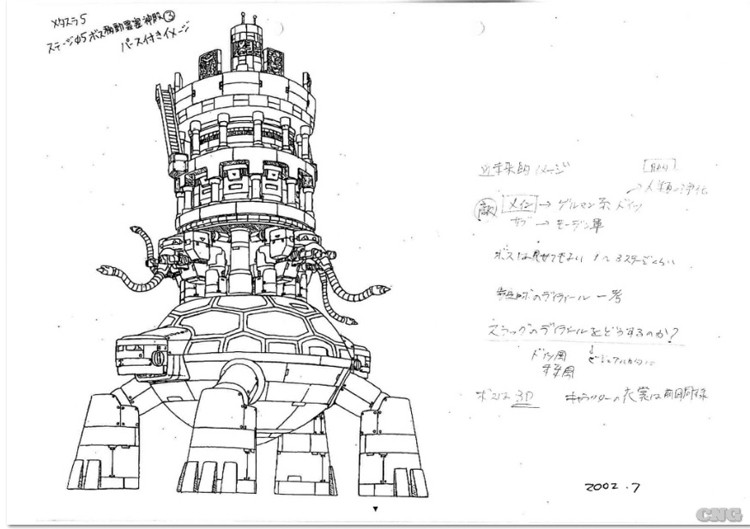 メタスラ5
ステージ05ボス移動要塞神殿③
パース付きイメージ
近未来的イメージ [目的]
→人類の浄化
敵 [メイン]→ゲルマン系 ドイツ
サブ→モーデン軍
ボスは見せてもよい 1~3ステージくらい
のディティール 一考
スラッグのディティールをどうするのか?
ドイツ風
ボスは3D キャラクターの衣装は前回同様
2002.7
CNG